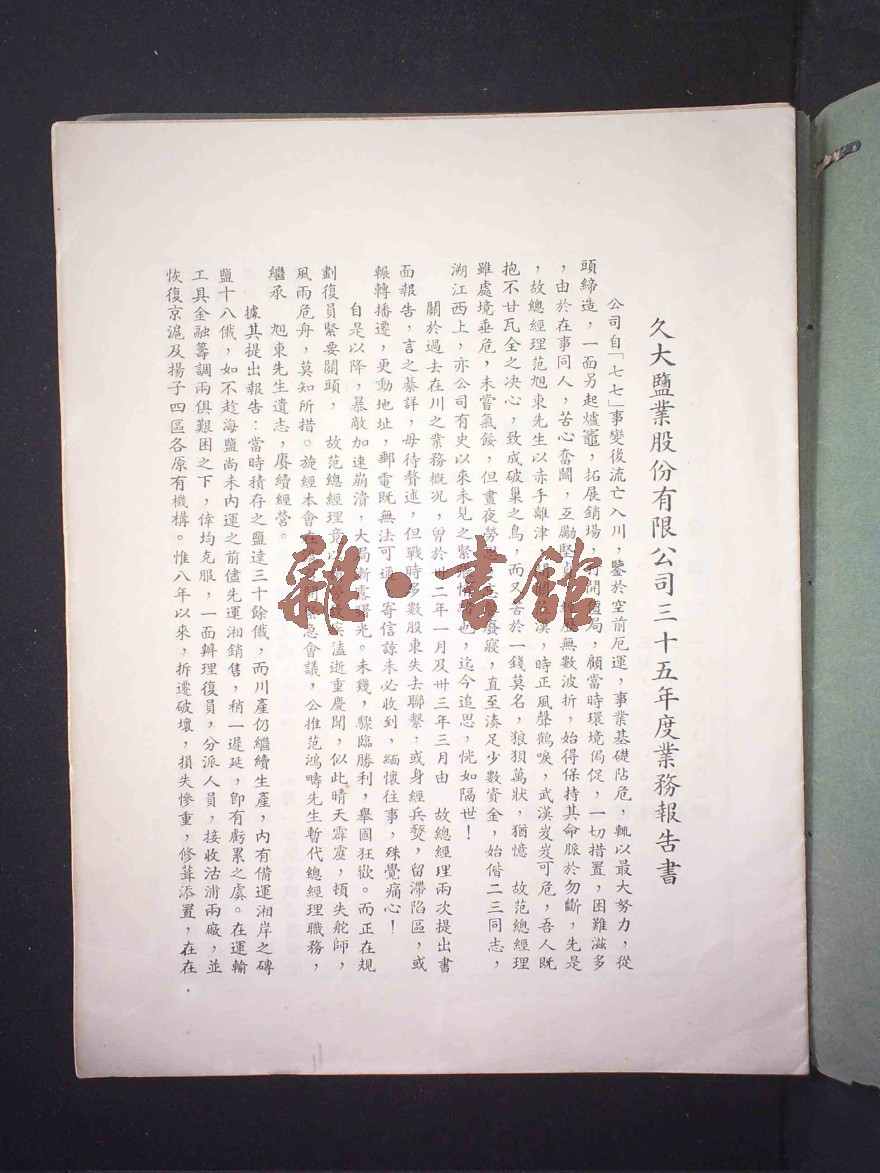 久大鹽業股份有限公司三十五年度業務報告書
公司自「七七」事變後流亡入川，鑒於空前厄運，事業基礎阽危，輒以最大努力，從
頭締造，一面另起爐竈，拓展銷場，打開鹽局，顧當時環境侷促，一切措置，困難滋多
，由於在事同人，苦心奮鬭，互勵堅 無數波折，始得保持其命脈於勿斷，先是
，故總經理范旭東先生以赤手離津 漢，時正風聲鶴唳，武漢岌岌可危，吾人既
抱不甘瓦全之決心，致成破巢之鳥，而又苦於一錢莫名，狼狽萬狀，猶憶 故范總經理
雖處境垂危，未嘗氣餒，但晝夜勞 廢寢，直至湊足少數資金，始偕二三同志，
溯江西上，亦公司有史以來未見之緊 也，迄今追思，恍如隔世！
關於過去在川之業務概況，曾於卅二年一月及卅三年三月由 故總經理兩次提出書
面報告，言之綦詳，毋待贅述，但戰時多數股東失去聯繫，或身經兵燹，留滯陷區，或
輾轉播遷，更動地址，郵電既無法可通，寄信諒未必收到，緬懷往事，殊覺痛心！
自是以降，暴敵加速崩潰，大局漸露曙光。未幾，驟臨勝利，舉國狂歡。而正在規
劃復員緊要關頭， 故范總經理竟以 疾溘逝重慶聞，似此晴天霹靂，頓失舵師，
風雨危舟，莫知所措。旋經本會在 急會議，公推范鴻疇先生暫代總經理職務，
繼承 旭東先生遺志，賡續經營。
據其提出報告：當時積存之鹽達三十餘儎，而川產仍繼續生產，內有備運湘岸之磚
鹽十八儎，如不趁海鹽尚未內運之前儘先運湘銷售，稍一遲延，卽有虧累之虞。在運輸
工具金融籌調兩俱艱困之下，倖均克服，一面辦理復員，分派人員，接收沽浦兩廠，並
恢復京滬及揚子四區各原有機構。惟八年以來，拆遷破壞，損失慘重，修葺添置，在在．
雜·書館